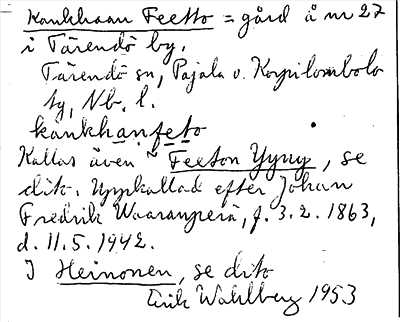 Kankhaan Feetto = gård å nr 27
i Tärendö by.
Tärendö sn, Pajala o. Korpilombolo
tg, Nb. l.
kankhanfeto
Kallas även ~ Feeton Yyny, se
dito. Uppkallad efter Johan
Fredrik Waaranperä, f. 3.2.1863,
d. 11.5.1942.
I Heinonen, se dito
Erik Wahlberg 1953